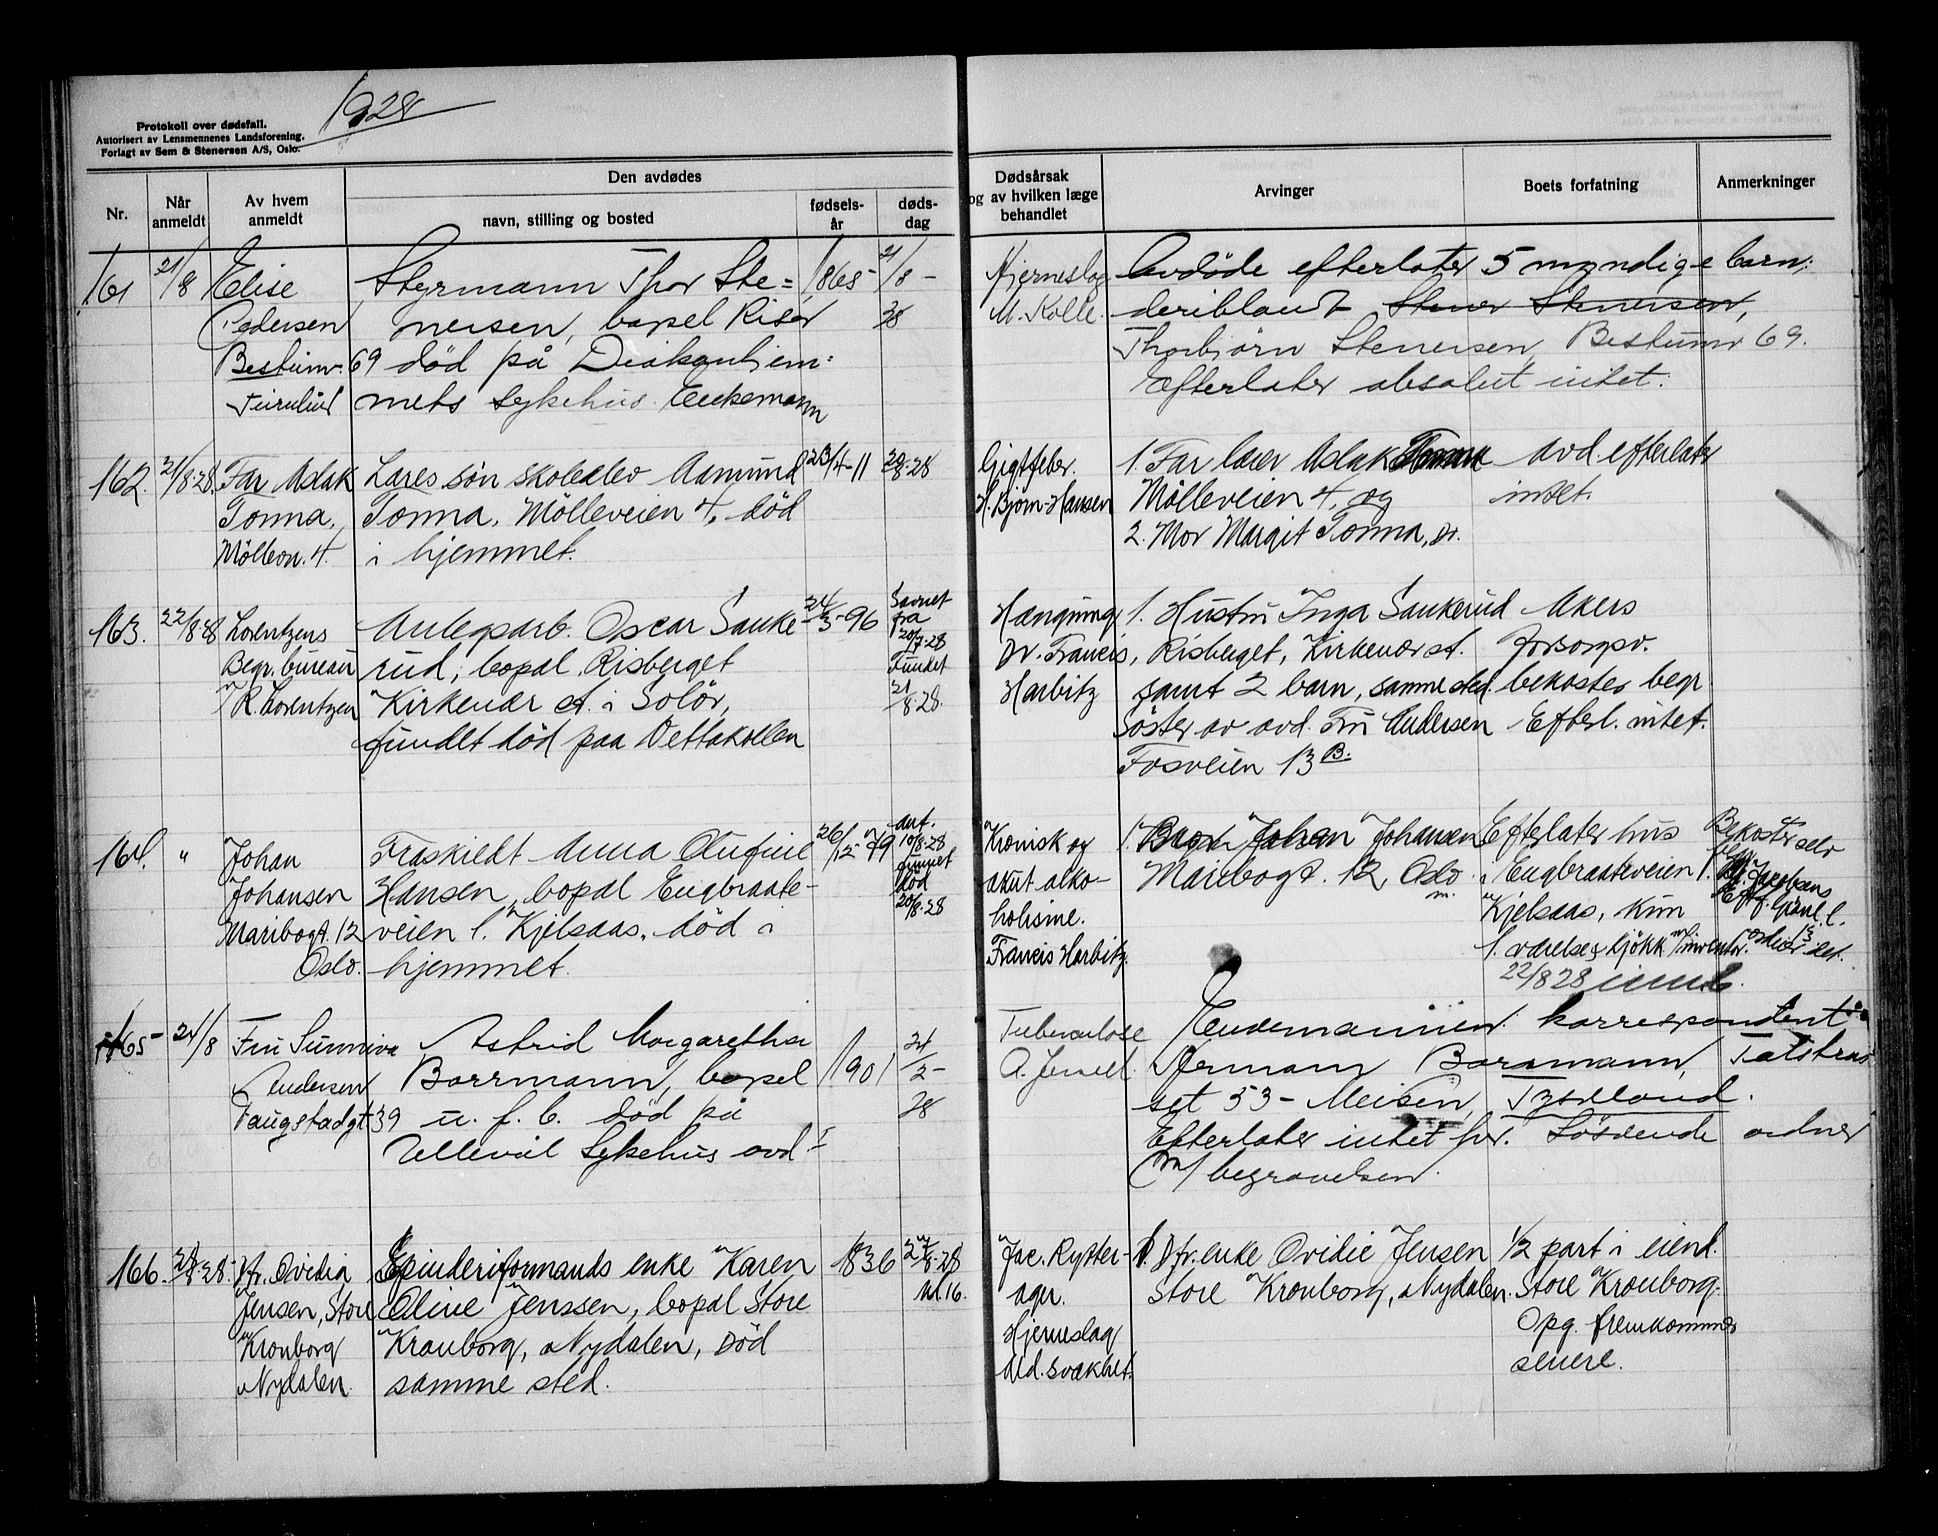 1928
Protokoll over dødsfall.
Autorisert av Lensmennenes Landsforening.
Forlagt av Sem & Stenersen A/S, Oslo.
Nr.
Når anmeldt
Av hvem anmeldt
Den avdødes
navn, stilling og bosted
fødsels-år
døds-dag
Dødsårsak og av hvilken læge behandlet
Arvinger
Boets forfatning
Anmerkninger
161 21/8 Elise Pedersen Bestumv. 69
Styrmann Thor Ste=
nersen, bopel Risør
død på Diakonhjem:
mets sykehus. Enkemann
1865 21/8-28
Hjerneslag
M. Kolle.
Avdøde efterlater 5 myndige barn;
deriblandt Stener Stenersen,
Thorbjørn Stenersen, Bestumv 69.
Efterlater absolut intet.
162. 21/8-28. Far Aslak
Tonna,
Möllevn. 4.
Læres søn skoleelev Aamund
Tonna, Mölleveien 4, död
i hjemmet.
23/4-11 20/8-28
Gigtfeber.
H. Bjørn-Hansen
1. Far lærer Aslak Tonna
Mölleveien 4, og
2. Mor Margit Tonna, Do.
Avd. efterlater
intet.
163. 22/8-28 Lorentzens
Begr. bureau
v/ R. Lorentzen
Anlegsarb. Oscar Sanke
rud, bopal Risberget
Kirkenær st. i Solör,
fundet död paa Vettakollen
24/3-96
Savnet
fra
20/7-28
Fundet
21/8-28.
Hængning
Dr. Francis
Harbitz
1. Hustru Inga Sankerud
Risberget, Kirkenær st.
samt 2 barn, samme sted.
Söster av avd. Fru Andersen
Fosveien 13 B.
Akers
forsorgsv.
bekoster begr.
Efterl. intet.
164. " Johan
Johansen
Maribogt. 12
Oslo.
Fraskildt Anna Olufine
Hansen, bopal Engbraate-
veien 1. Kjelsaas, död i
hjemmet.
26/12-79
Ant.
10/8-28
funnet
död
20/8-28
Kronisk og
akut alko-
holisme.
Francis Harbitz.
1. Bror Johan Johansen
Maribogt. 12, Oslo.
Efterlater hus
i Engbraateveien 1.
Kjelsaas, kun
1. værelse & kjøkk m/inventar.
22/8 28
Bekoster selv
165 24/8 Fru Sunniva
Andersen
Faugstadgt 39
Astrid Margaretha
Borrmann, bopel
u. f. b. död på
Ullevål Sykehus avd I
1901 24/2-28
Tuberculose
A. Jervell.
Enkemannen korrespondent
Hermann Borrmann,
53 - Meisen, Tyskland.
Efterlater intet her. Søskende ordner
m/ begravelsen.
166. Fr. Ovidia
Jensen, Store
Kronborg
Nydalen.
Spinderiformands enke Karen
Oline Jenssen, bopal Store
Kronborg, Nydalen, död
samme sted.
1836
8-28
kl. 16.
Jac. Rytter-
ager.
Hjerneslag
Ald. svakhet.
1. Dtr. enke Ovidie Jensen
Store Kronborg, Nydalen.
1/2 part i eiend.
Store Kronborg.
Opg. fremkommer
senere.